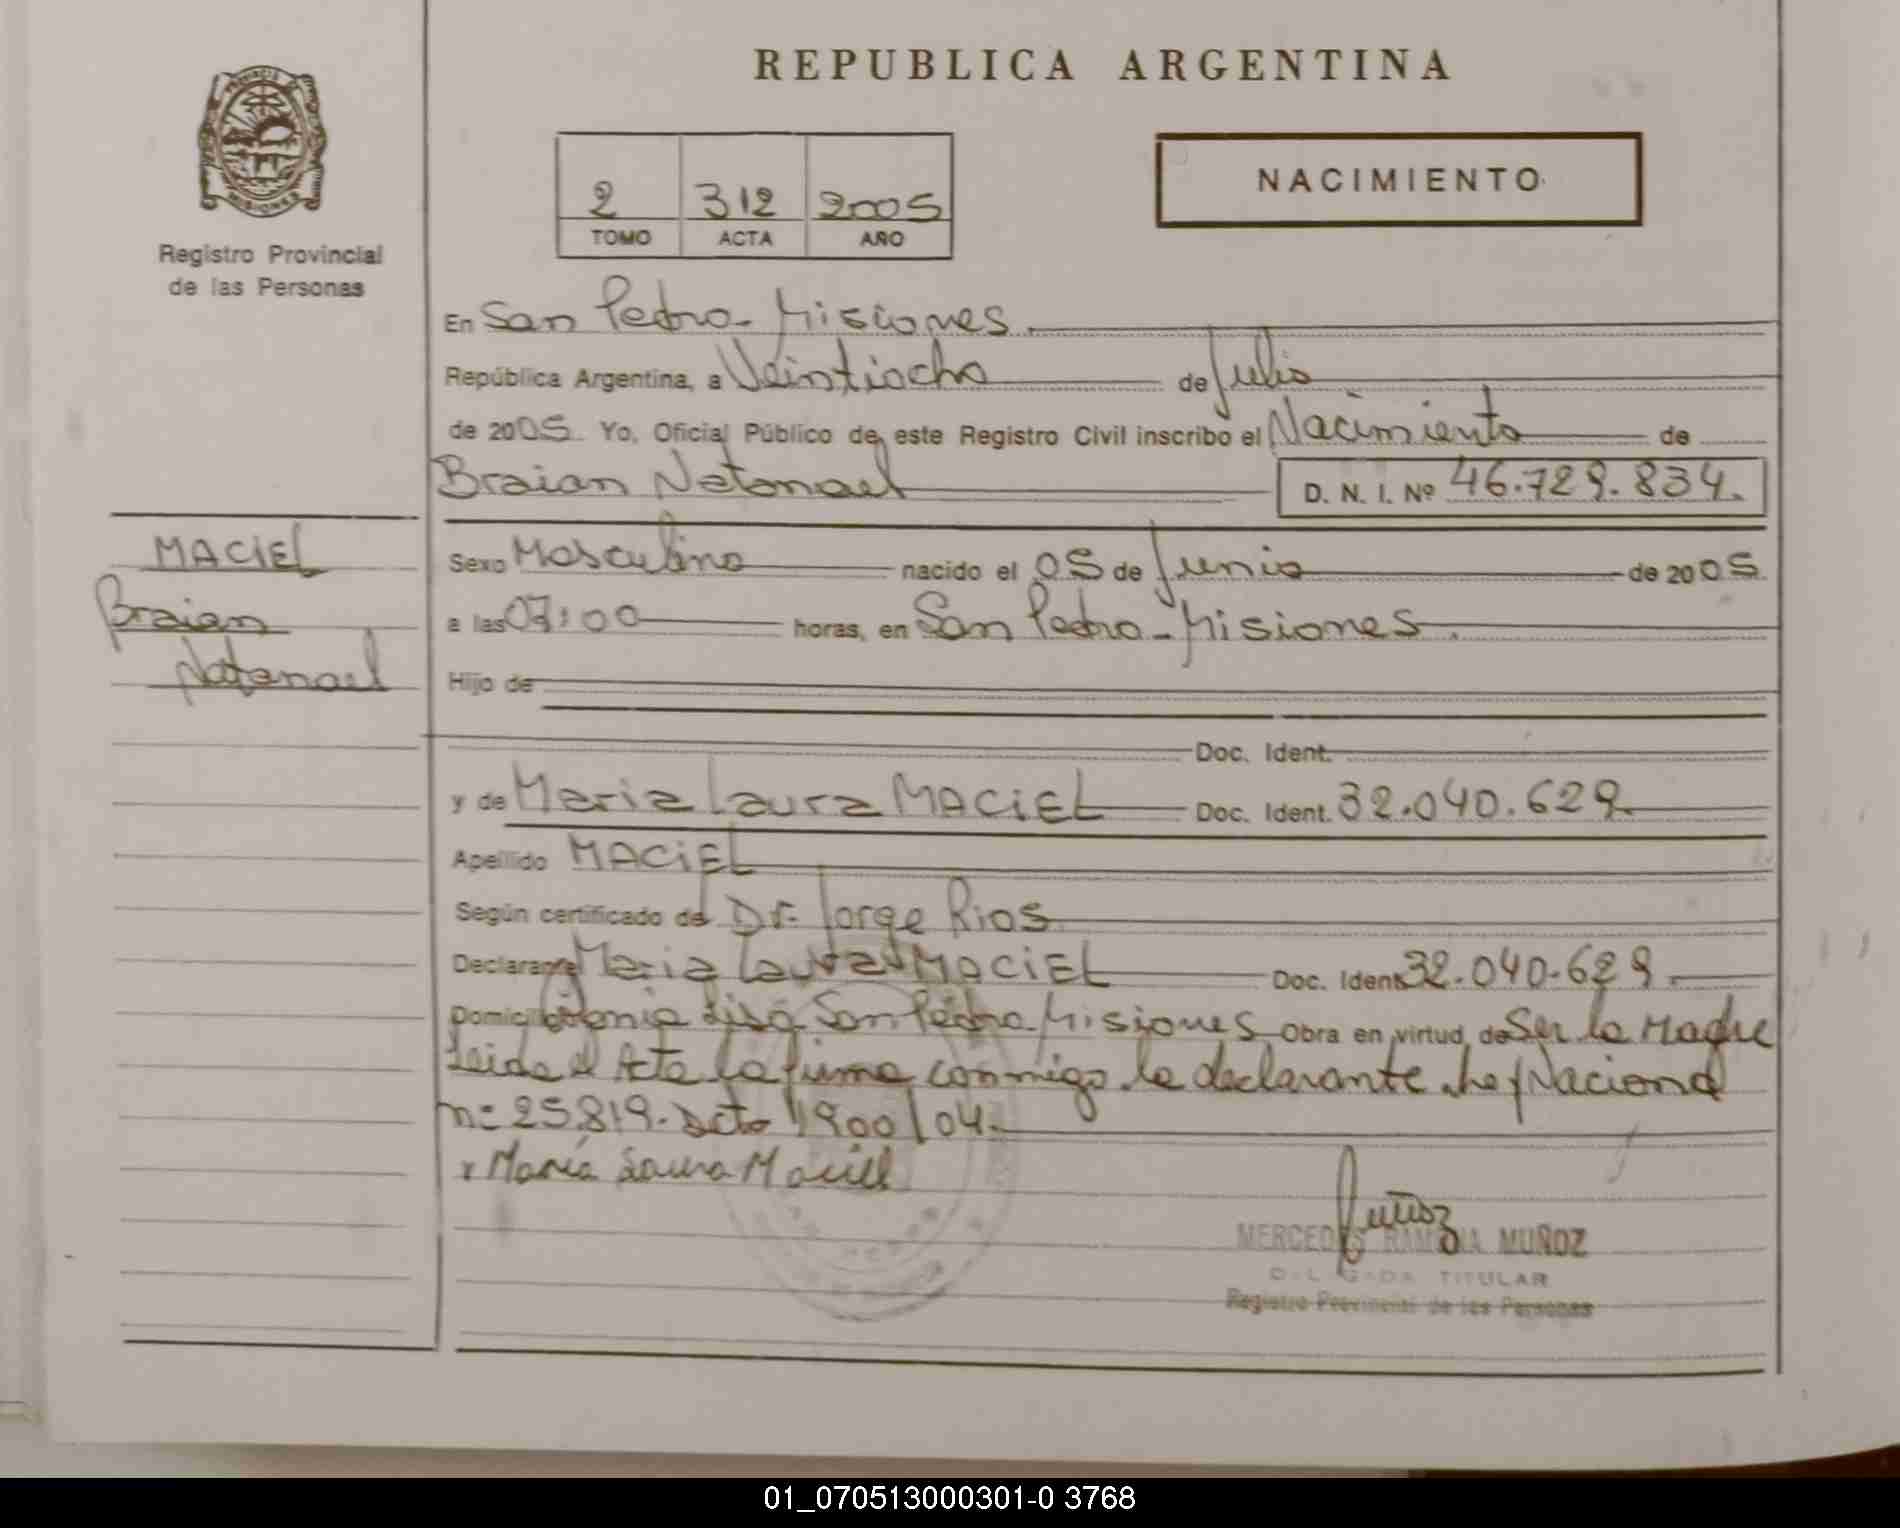 REPUBLICA ARGENTINA
NACIMIENTO
2 312 2005
TOMO ACTA AÑO
PROVINCIA DE MISIONES
Registro Provincial
de las Personas
En San Pedro - Misiones.
República Argentina, a Veintiocho de Julio
de 2005. Yo, Oficial Público de este Registro Civil inscribo el Nacimiento de
Braian Natanael D. N. I. Nº 46.729.834.
MACIEL
Braian
Natanael
Sexo Masculino nacido el 05 de Junio de 2005
a las 07:00 horas, en San Pedro - Misiones.
Hijo de
Doc. Ident.
y de Maria Laura MACIEL Doc. Ident. 32.040.629.
Apellido MACIEL
Según certificado de Dr. Jorge Rios
Declarante Maria Laura MACIEL Doc. Ident. 32.040.629.
Domicilio San Pedro - Misiones Obra en virtud de Ser la Madre
Leida el Acta la firma conmigo la declarante. Ley Nacional
nº 25.819. Dcto 1900/04.
x María Laura Maciel
Muñoz
MERCEDES RAMONA MUÑOZ
DELEGADA TITULAR
Registro Provincial de las Personas
01_070513000301-0 3768